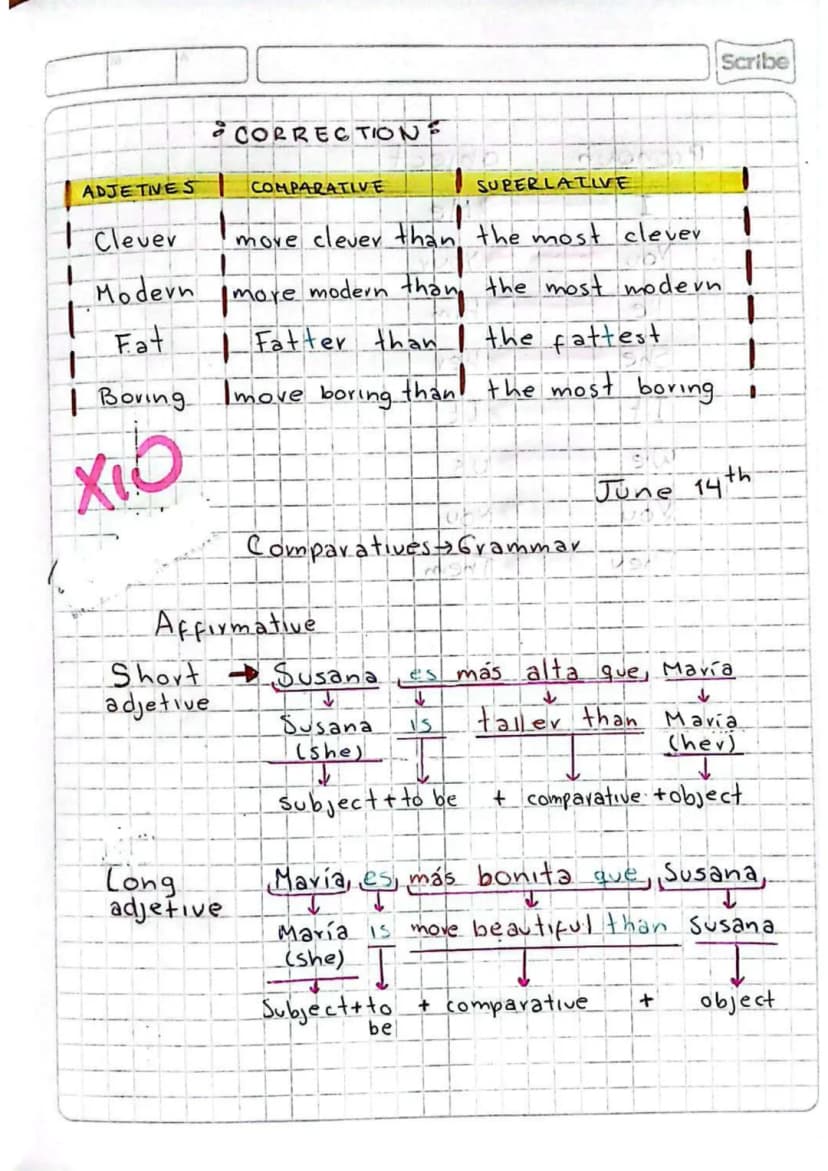 Scribe
CORRECTION
ADJETIVES COMPARATIVE SUPERLATIVE
Clever more clever than the most clever
Modern more modern than the most modern
Fat Fatter than the fattest
Boring more boring than the most boring
X10
June 14th
Comparatives→Grammar
Affirmative
Short → Susana es más alta que María
adjetive
Susana is taller than María
(she) (her)
subject + to be + comparative + object
Long María es más bonita que Susana
adjetive
María is more beautiful than Susana
(she)
Subject + to + comparative + object
be